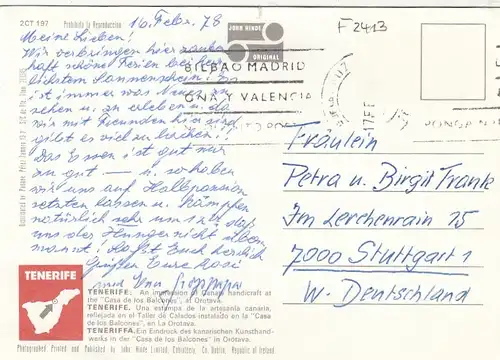 2CT 197
Prohibida la Reproduccion
16. Febr. 78
F 2413
Meine Lieben!
Wir verbringen hier zauber
haft schöne Ferien bei herr
lichstem Sonnenschein. Es
ist immer was Neues zu
sehen u. zu erleben u. da
wir mit Freunden hier sind
gibt es viel zu lachen!
Das Essen ist gut nur
zu gut — u. so haben
wir uns auf Halbpension
setzen lassen u. kämpfen
natürlich sehr um daß
uns der Hunger nicht über
mannt. Laßt Euch herzlich
Grüßen Eure Rosi
und
JOHN HINDE
ORIGINAL
BILBAO MADRID
Y VALENCIA
Fräulein
Petra u. Birgit Frank
Im Lerchenrain 15
7000 Stuttgart 1
W. Deutschland
TENERIFE
TENERIFE. An impression of Canary handicraft at
the "Casa de los Balcones", at Orotava.
TENERIFE. Una estampa de la artesanía canaria,
reflejada en el Taller de Calados instalado en la "Casa
de los Balcones", en La Orotava.
TENERIFFA. Ein Eindruck des kanarischen Kunsthand-
werks in der "Casa de los Balcones" in Orotava.
Photographed, Printed and Published by John Hinde Limited, Cabinteely, Co. Dublin, Republic of Ireland.